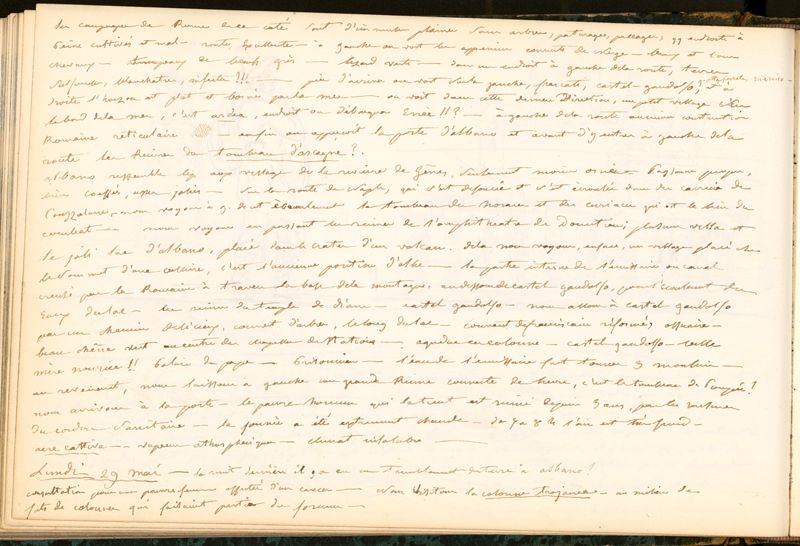 La campagne de Rome de ce côté sont d'immenses plaines sans arbres, pâturages, quelques endroits à
peine cultivés et mal - route - à gauche on voit les appenins couverts de neige - beaux et bons
chevaux - troupeaux de boeufs gris - lézard verts - dans un endroit à gauche de la route, terrain
blanchâtre, sulfureux !!! - près d'arriver on voit sur la gauche, frascati, castel-gandolfo, et à
droite l'horizon est plat et borné par la mer - on voit dans cette dernière Direction, un petit village sur
le bord de la mer, c'est ardea, endroit où débarqua Enée !!? - à gauche de la route aucune construction
Romaine réticulaire - enfin on apperçoit la porte d'albano et avant d'y entrer à gauche de la
route les Ruines du tombeau d'ascagne ?.
albano ressemble aux villages de la rivière de Gênes, seulement moins ornée - Paysannes propres,
bien coiffées, assez jolies - Sur la route de Naples, qui
nous voyons à g. le tombeau des horaces et des curiaces qui est le lieu du
combat - nous voyons en passant les ruines de l'amphithéâtre de Domitien; plusieurs villa et
le joli lac d'albano, placé dans le cratère d'un volcan. de là nous voyons, en face, un village placé sur
le sommet d'une colline, c'est l'ancienne position d'albe - la partie interne de l'émissaire ou canal
creusé par les Romains à travers la base de la montagne, au dessous de castel gandolfo, pour l'écoulement des
Eaux du lac - les ruines du temple de diane - castel gandolfo - nous allons à castel gandolfo
par un chemin délicieux, couvert d'arbres, le long du lac - couvent de franciscains réformés, ossuaire -
beau chêne vert au centre des chapelles de Stations - aqueduc - castel gandolfo - belle
mère nourrice !! Palais du pape - Prisonnier - l'eau de l'émissaire fait tourner 3 moulins -
en revenant, nous laissons à gauche une grande Ruine couverte de lierre, c'est le tombeau de Pompée !
nous arrivons à la porte - le pauvre homme qui la tient est ruiné depuis 3 ans, par les mesures
du cordon Sanitaire - la journée a été extrêmement chaude - de 7 à 8 h l'air est très froid -
aere cattiva - vapeurs atmosphérique - climat insalubre -
Lundi 29 mai - la nuit dernière il y a eu un tremblement de terre à albano !
consultation pour une pauvre femme affectée d'un cancer - nous visitons la colonne trajanne - au milieu de
fûts de colonnes qui faisaient partie du forum -